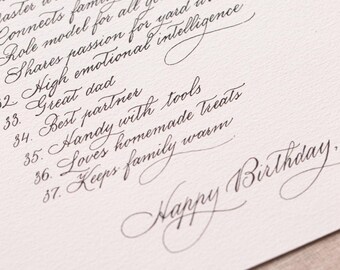 Connects family
Role model for all
Shares passion for yard
32. High emotional intelligence
33. Great dad
34. Best partner
35. Handy with tools
36. Loves homemade treats
37. Keeps family warm
Happy Birthday,